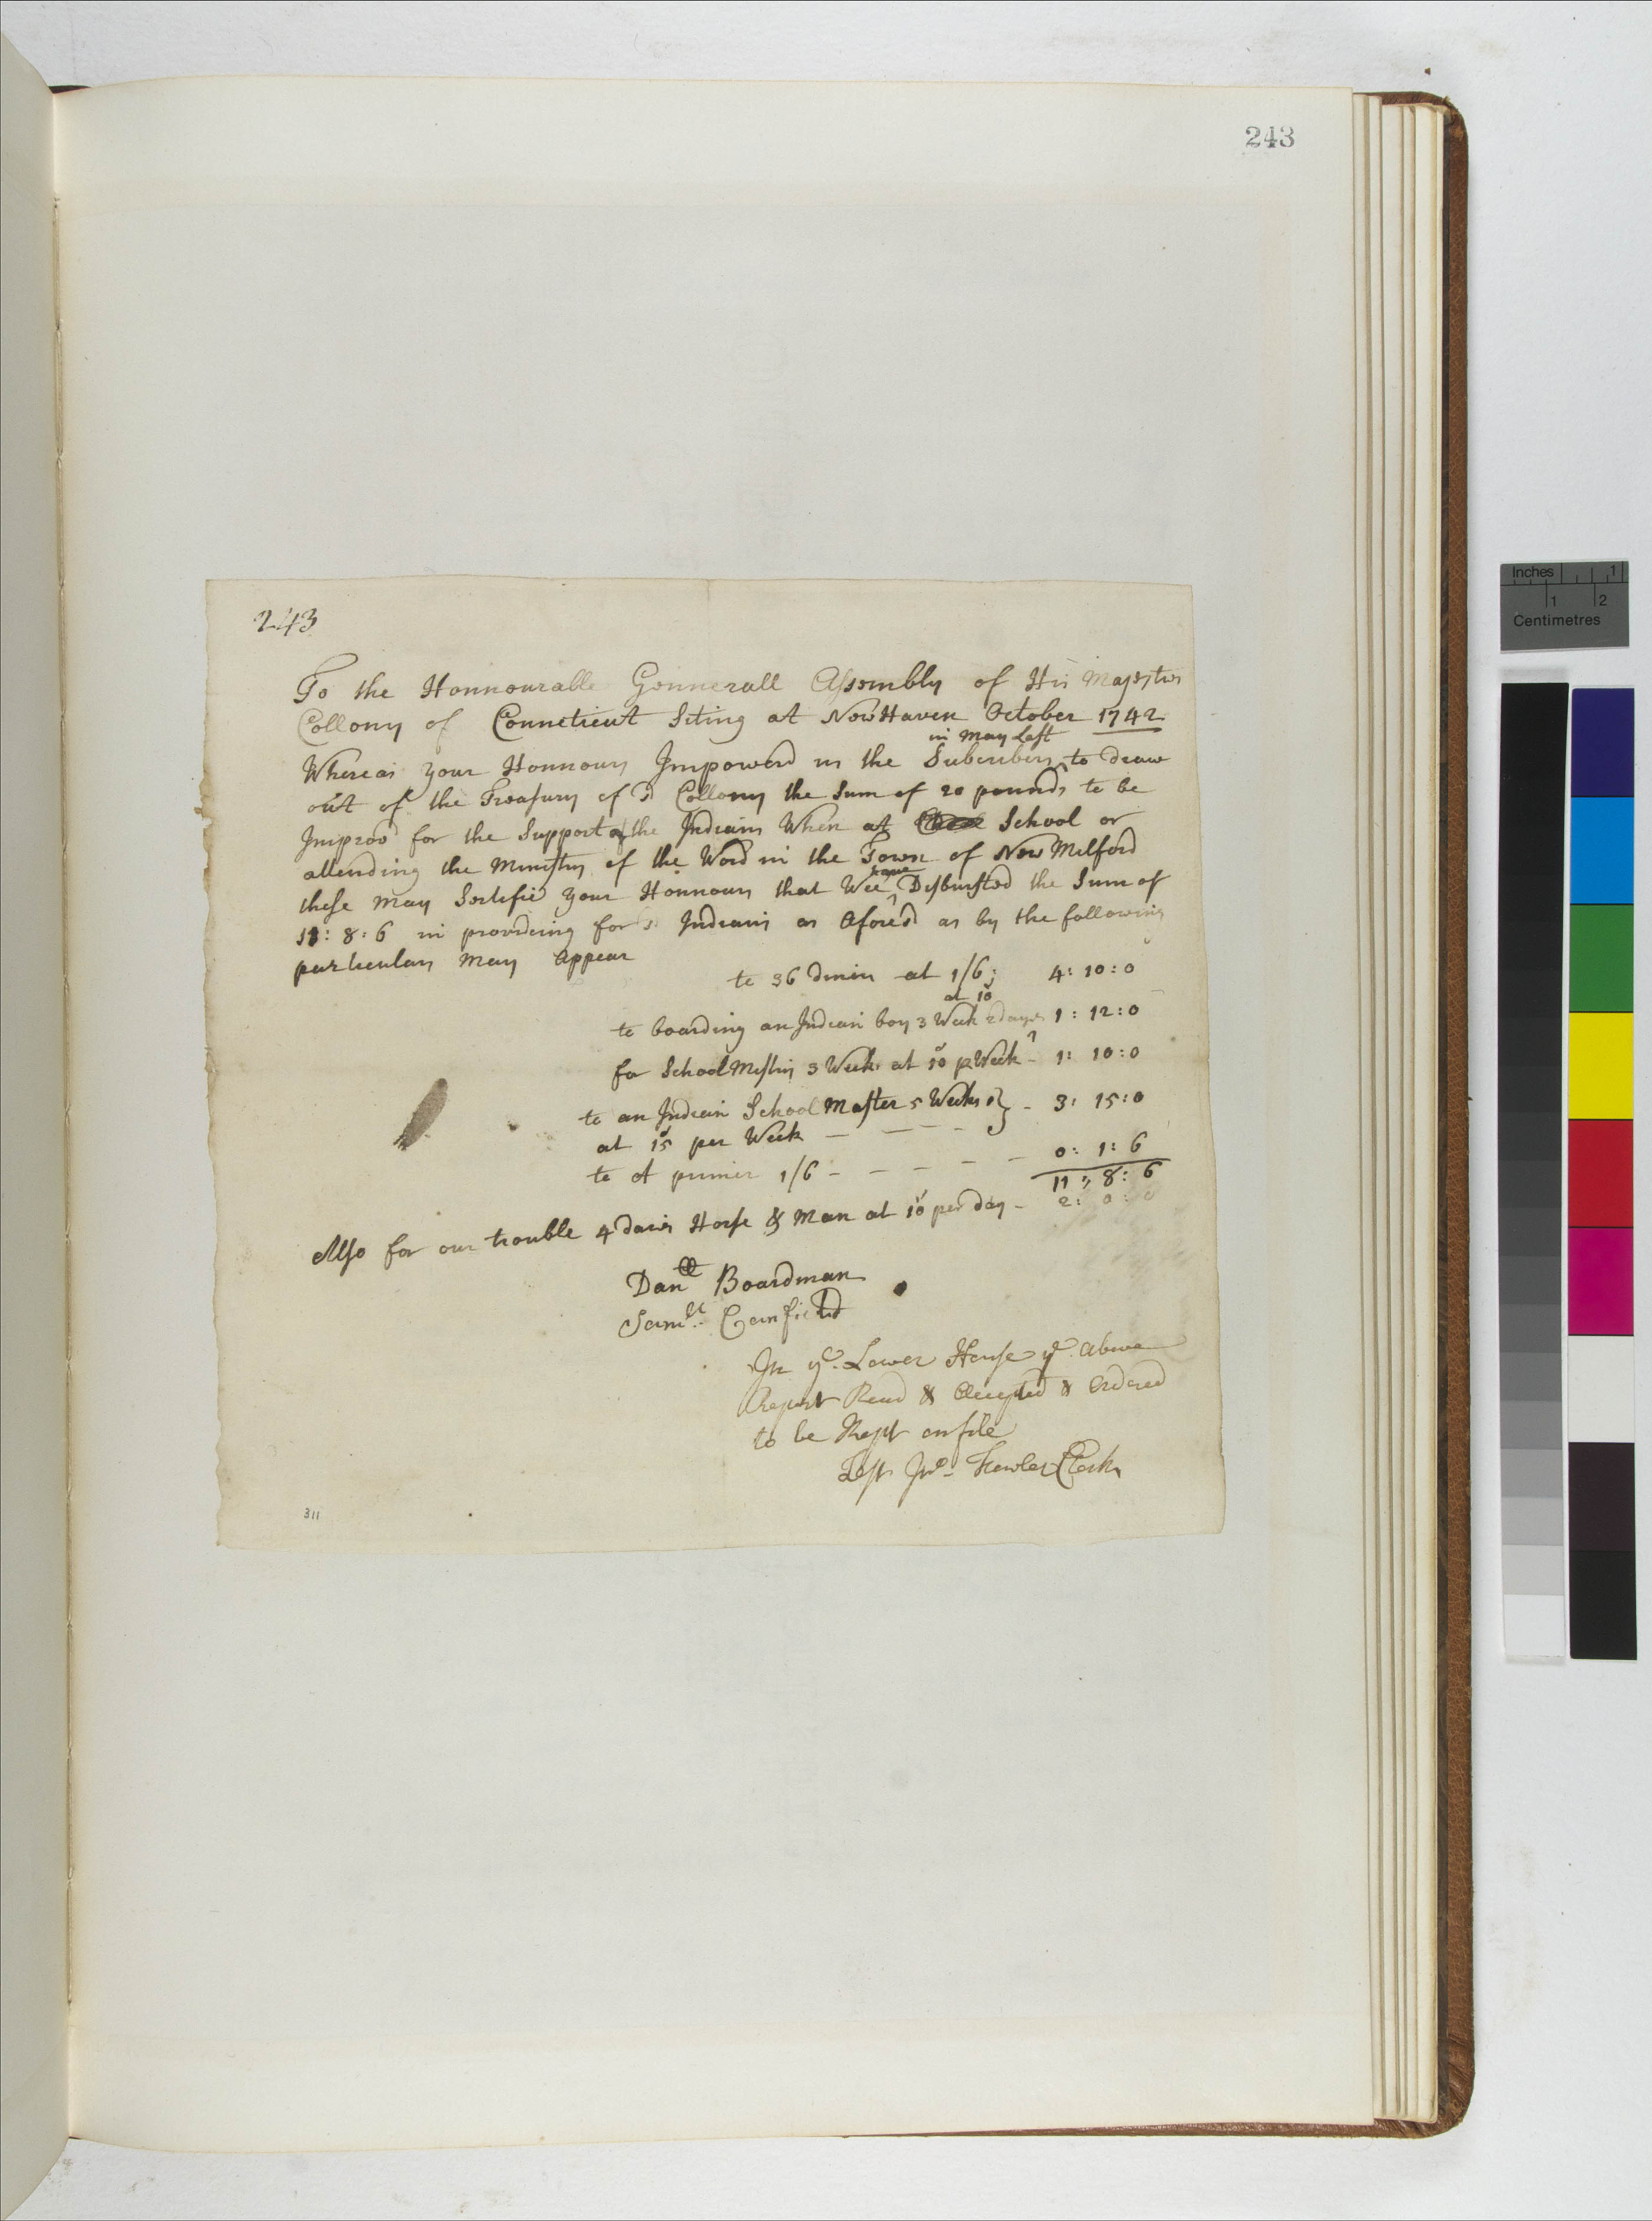 243
243
To the Honnourable Gennerall Assembly of His Majesties
Collony of Conneticut Siting at New Haven October 1742
in May Last
Whereas your Honnours Impowerd us the Subcribers to draw
out of the Treasury of sd Collony the Sum of 20 pounds to be
Improvd for the Support of the Indians When at School or
attending the Ministry of the Word in the Town of New Milford
have
these may Sertifie your Honnours that Wee Disbursted the Sum of
11:8:6 in providing for sd Indians as aforesd as by the following
particulars may appear
to 36 dinin at 1/6; 4:10:0
at 10s
to boarding an Indian boy 3 Week 2 days 1:12:0
for School Mestris 3 Weeks at 10s p Week - 1:10:0
to an Indian School Master 5 Weeks - 3:15:0
at 15s per Week - - - -
to A primer 1/6 - - - - - 0:1:6
11:8:6
Also for our trouble 4 daies Horse & Man at 10s per day - 2:0:0
Danll Boardman
Samll Canfield
In ye Lower House ye above
Report Read & Accepted & Ordered
to be Kept on file
Test Jno Fowler Clerk
311
Inches 1
1 2
Centimetres